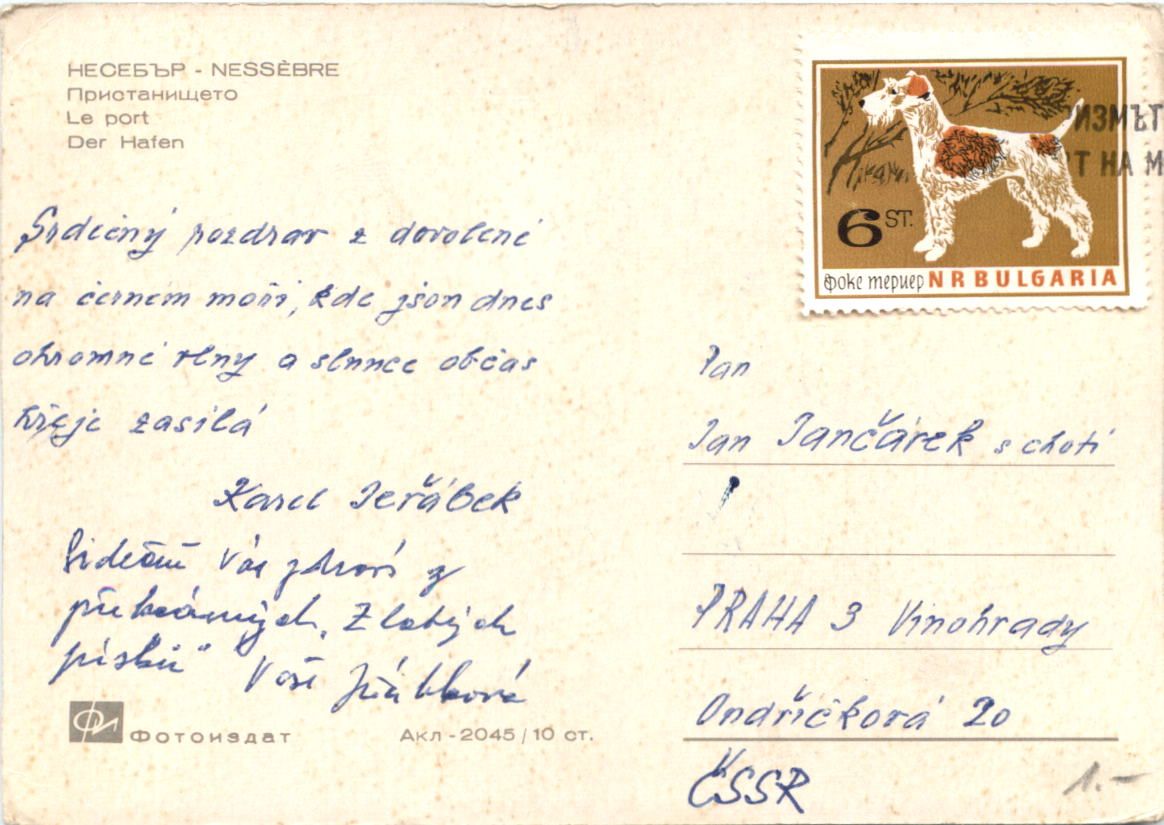 НЕСЕБЪР - NESSÈBRE
Пристанището
Le port
Der Hafen
Srdečný pozdrav z dovolené
na černem moři, kde json dnes
ohromné vlny a slunce občas
hřeje zasílá
Karel Jeřábek
Srdečně Vás zdraví z
překrásných „Zlatých
písků" Vaše Jeřábková
Фи Фотоиздат
Акл-2045/10 ст.
ИЗМЪТ
Т НА М
6 ST.
фокс териер NR BULGARIA
Pan
Jan Jančárek s chotí
PRAHA 3 Vinohrady
Ondříčková 20
ČSSR
1.-